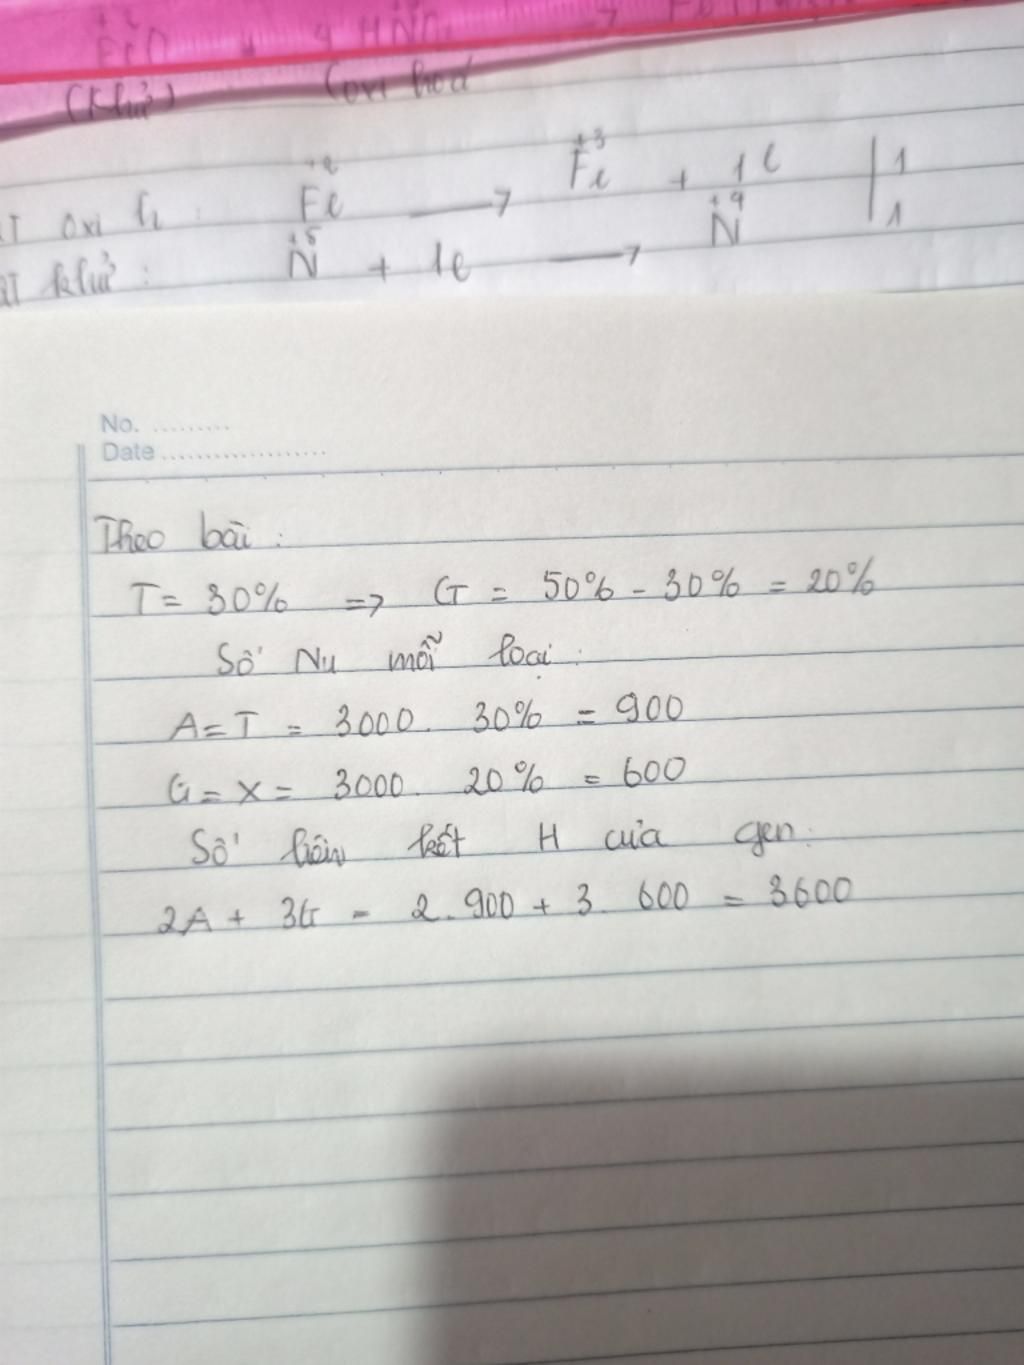 FeO + 4 HNO₃ →
(khử) (oxi hoá
oxi h : Fe⁺² → Fe⁺³ + 1e | 1
khử : N⁺⁵ + 1e → N⁺⁴ | 1
No. .........
Date ...................
Theo bài :
T = 30% => G = 50% - 30% = 20%
Số Nu mỗi loại :
A = T = 3000 . 30% = 900
G = X = 3000 . 20% = 600
Số liên kết H của gen :
2A + 3G = 2 . 900 + 3 . 600 = 3600